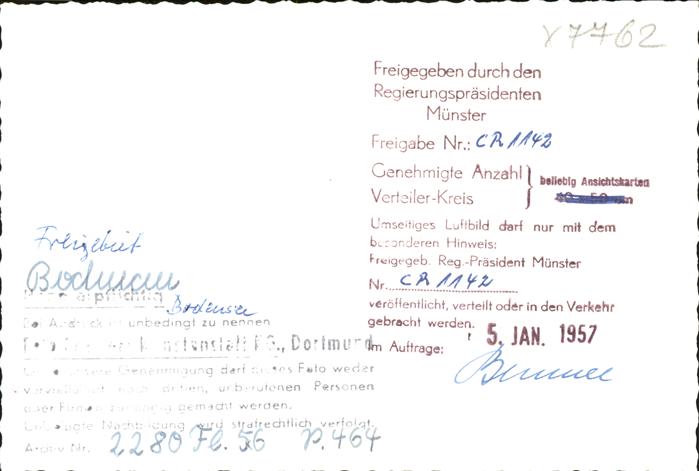 γ7762
Freigegeben durch den
Regierungspräsidenten
Münster
Freigabe Nr.: CR 1142
Genehmigte Anzahl
beliebig Ansichtskarten
Verteiler-Kreis
Umseitiges Luftbild darf nur mit dem
besonderen Hinweis:
Freigegeb. Reg.-Präsident Münster
Nr. CR 1142
veröffentlicht, verteilt oder in den Verkehr
gebracht werden.
5. JAN. 1957
Im Auftrage:
Bodman
Bodensee
Bei Abdruck ist unbedingt zu nennen
Kunstanstalt KG., Dortmund
Ohne unsere Genehmigung darf dieses Foto weder
vervielfältigt noch dritten, unberufenen Personen
oder Firmen zugängig gemacht werden.
Unbefugte Nachbildung wird strafrechtlich verfolgt.
Archiv Nr. 2280 Fl. 56 P. 464